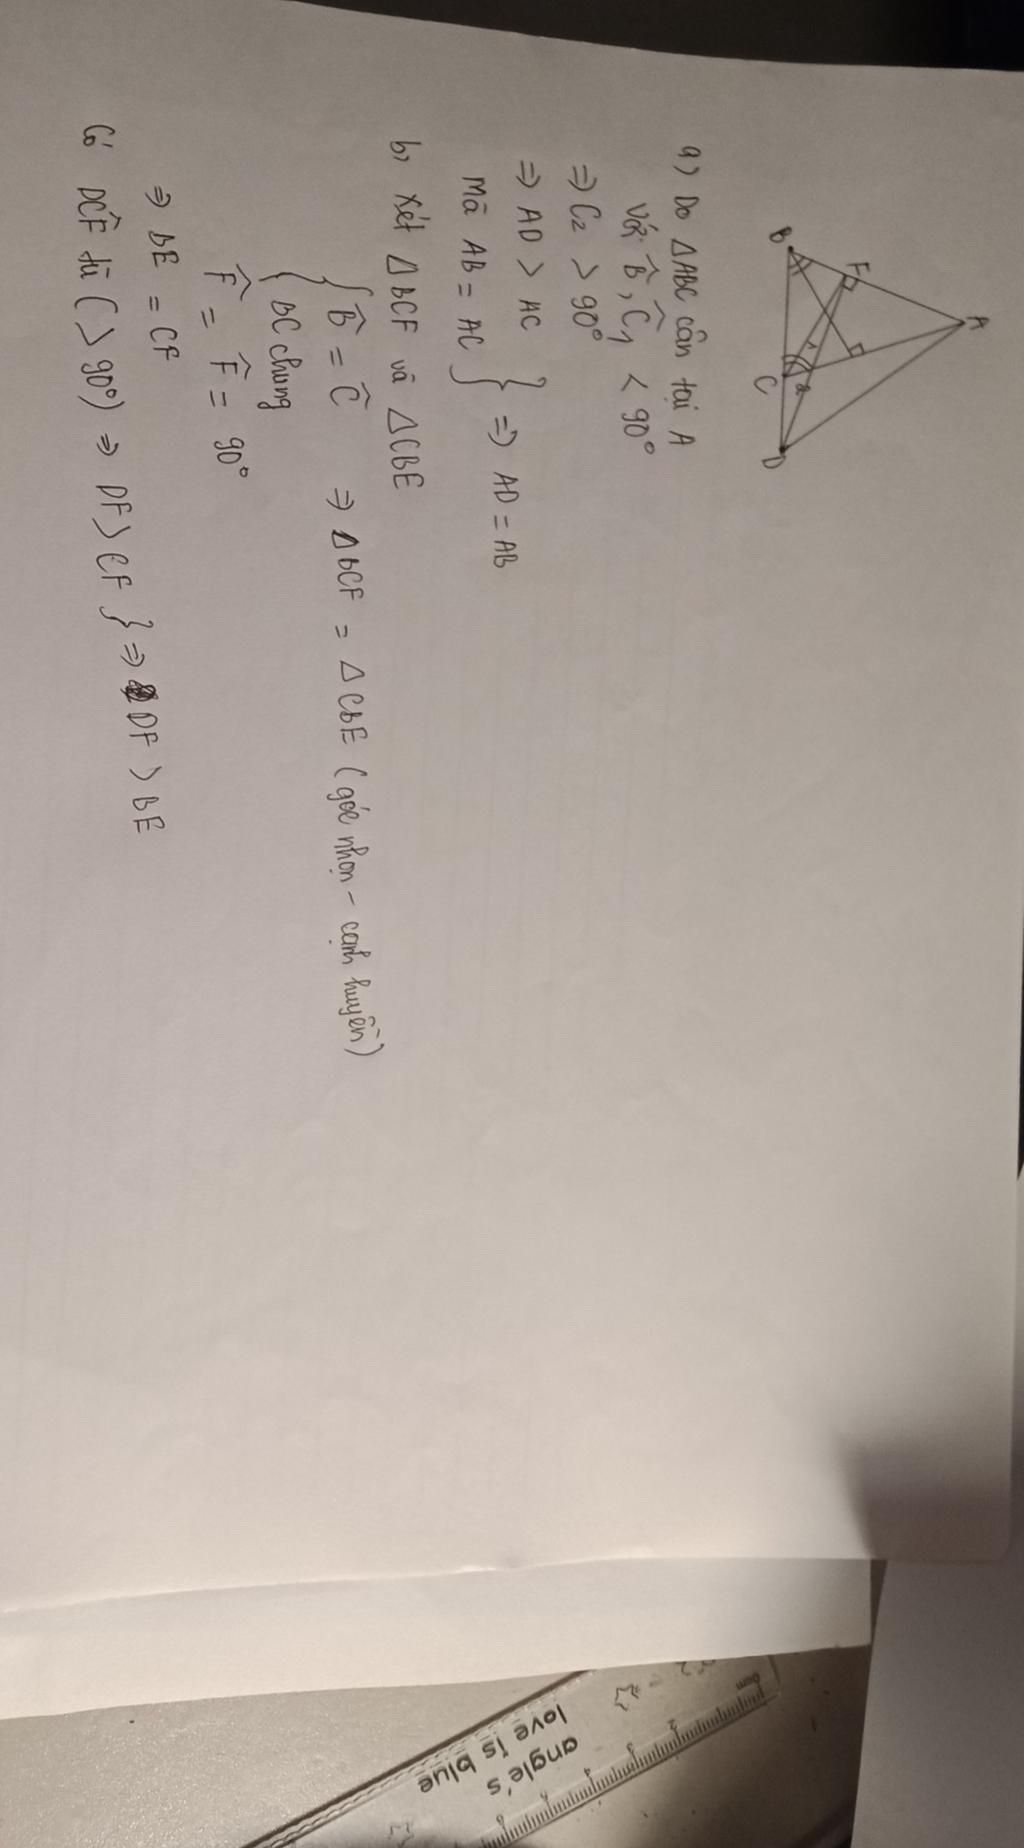 A
F
B
1
2
C
D
a) Do △ABC cân tại A
Với B̂, Ĉ₁ < 90°
=> C₂ > 90°
=> AD > AC
Mà AB = AC } => AD = AB
b, Xét △BCF và △CBE
{ B̂ = Ĉ
BC chung => △BCF = △CBE (góc nhọn - cạnh huyền)
F̂ = F̂ = 90°
=> BE = CF
Có DĈF tù (> 90°) => DF > CF } => DF > BE
0cm 2 3 4 5 6
angle's
love is blue